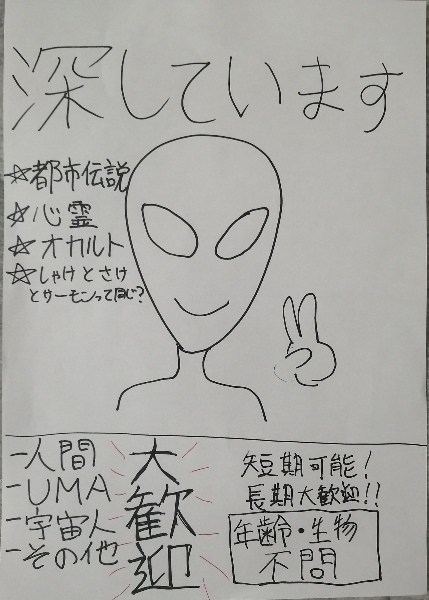 深しています
☆都市伝説
☆心霊
☆オカルト
☆しゃけとさけ
とサーモンって同じ?
-人間
-UMA
-宇宙人
-その他
大歓迎
短期可能!
長期大歓迎!!
年齢・生物
不問